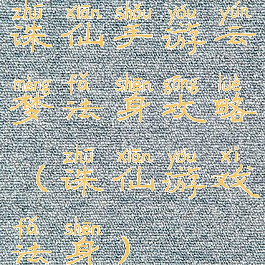 zhū xiān shǒu yóu yún
诛仙手游云
mèng fǎ shēn gōng lüè
梦法身攻略
zhū xiān yóu xì
（诛仙游戏
fǎ shēn
法身）